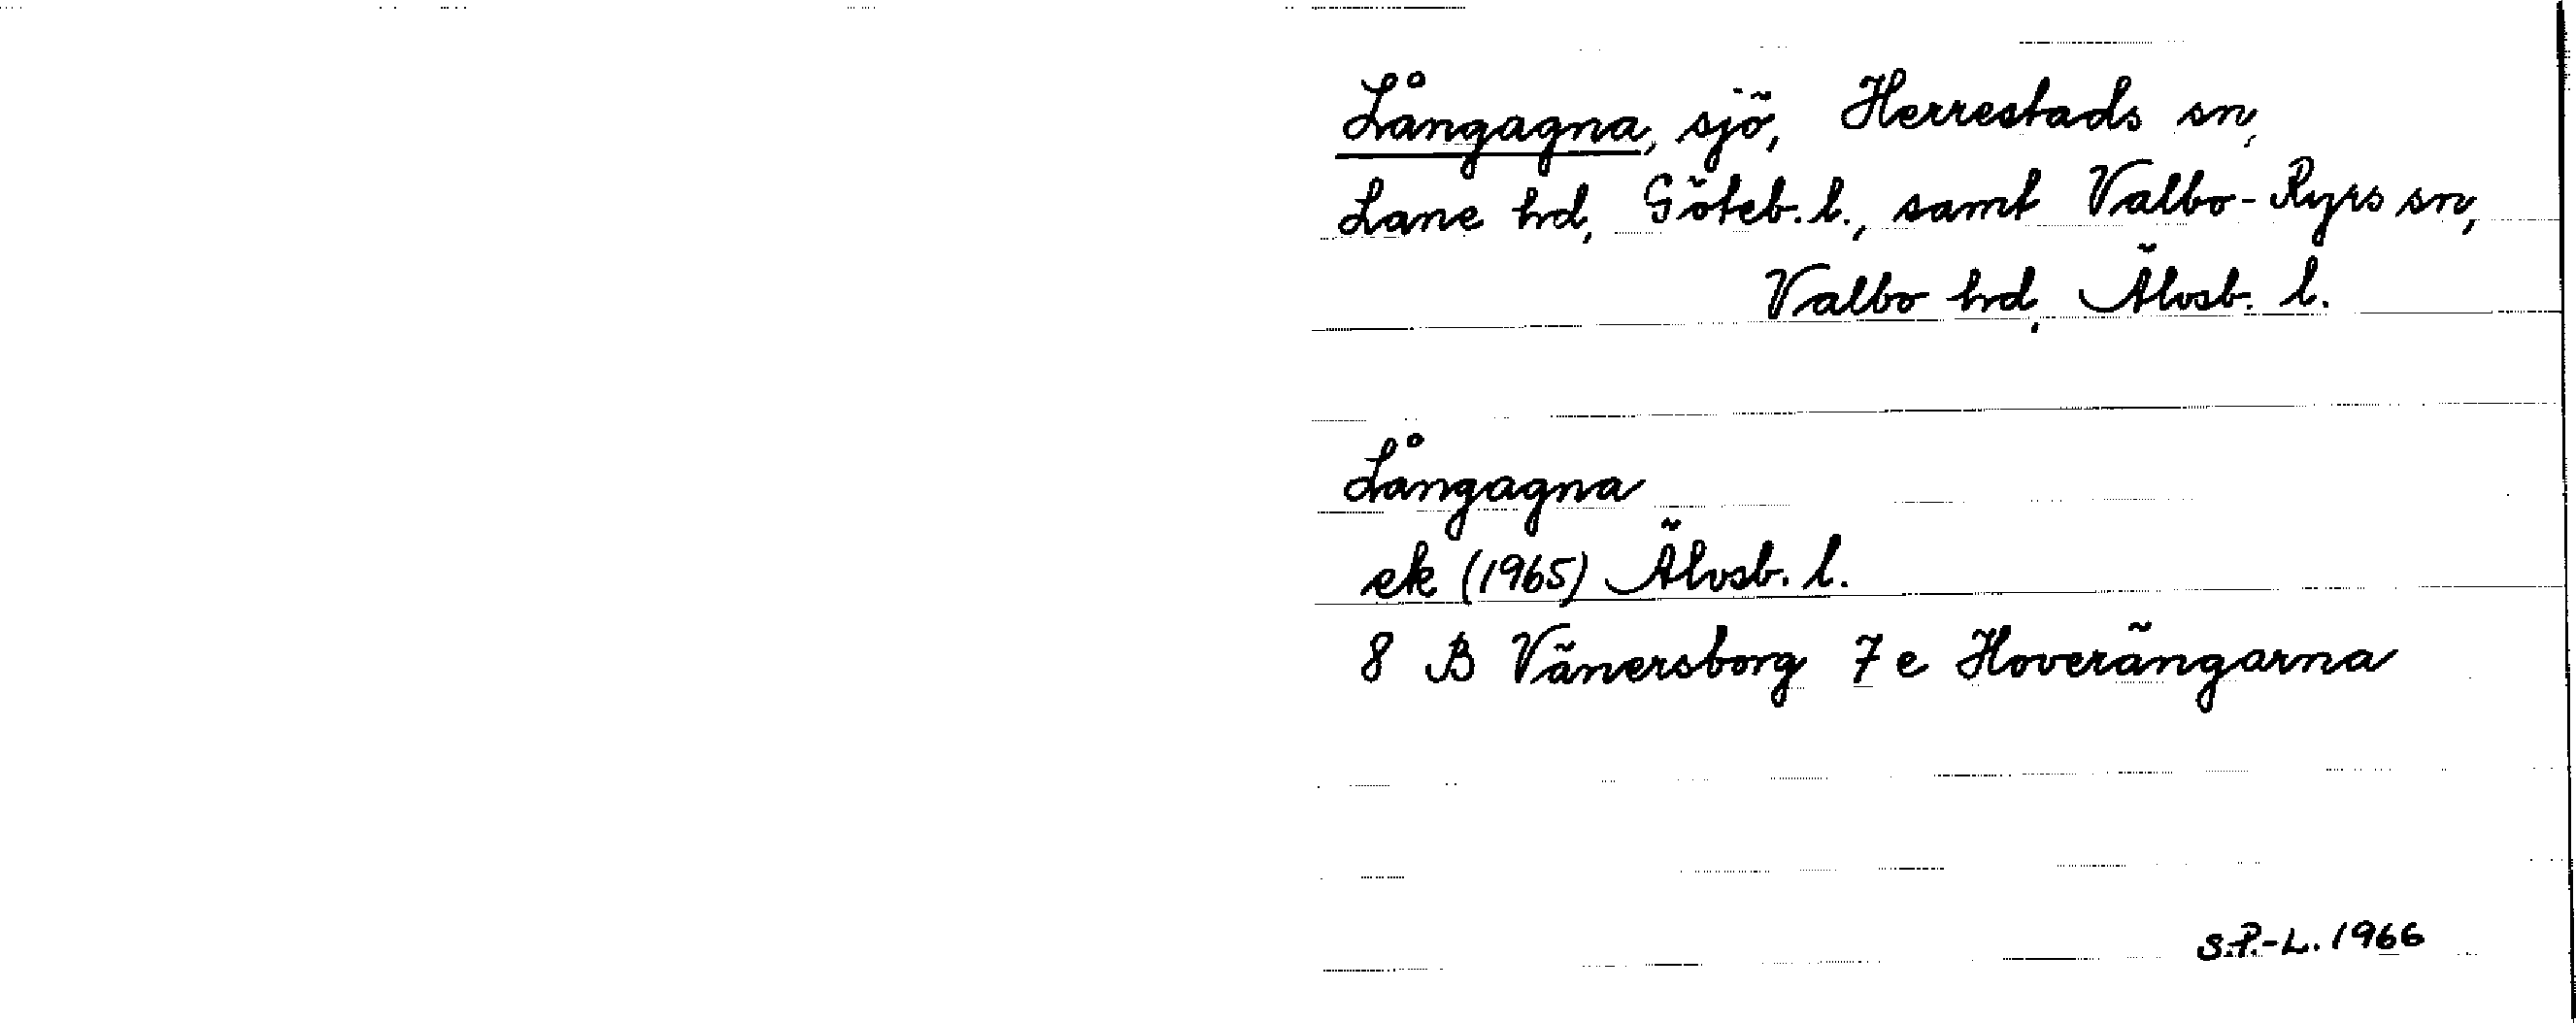 Långagna, sjö, Herrestads sn,
Lane hd, Göteb. l., samt Valbo-Ryrs sn,
Valbo hd, Älvsb. l.
Långagna
ek (1965) Älvsb. l.
8 B Vänersborg 7 e Hoverängarna
S.P.-L. 1966